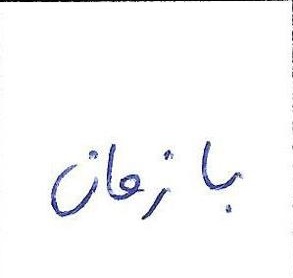 بازمان